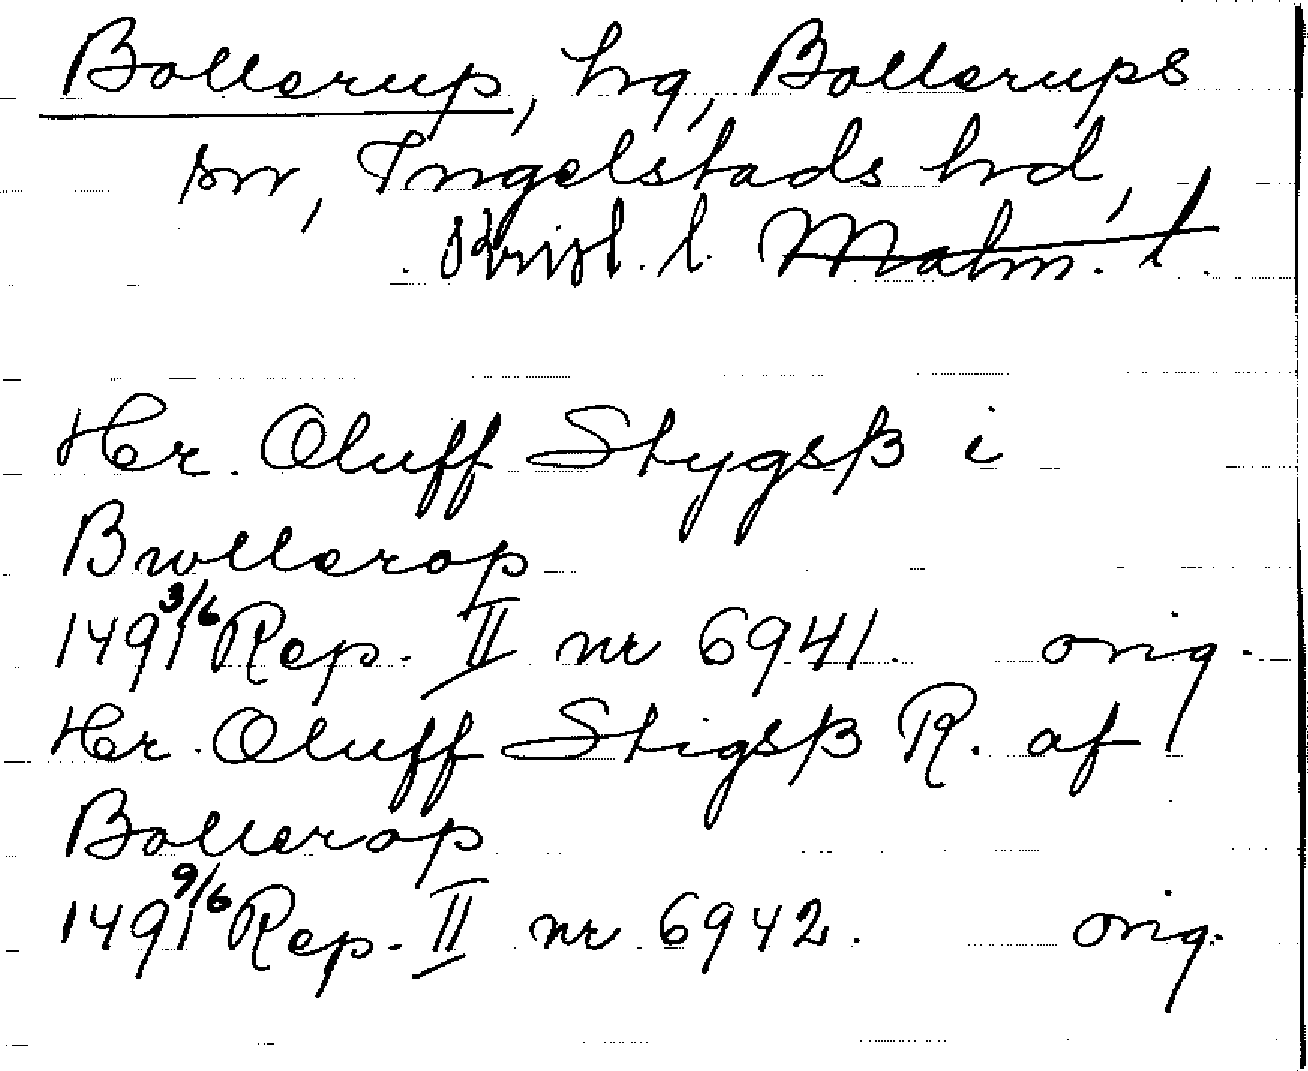 Bollerup, hg, Bollerups
sn, Ingelstads hd,
Krist. l. Malm. l.
Her. Oluff Stygsß i
Bwllerop
1491 3/6 Rep. II nr 6941. orig.
Her. Oluff Stigsß R. af
Bollerop
1491 9/6 Rep. II nr 6942. orig.